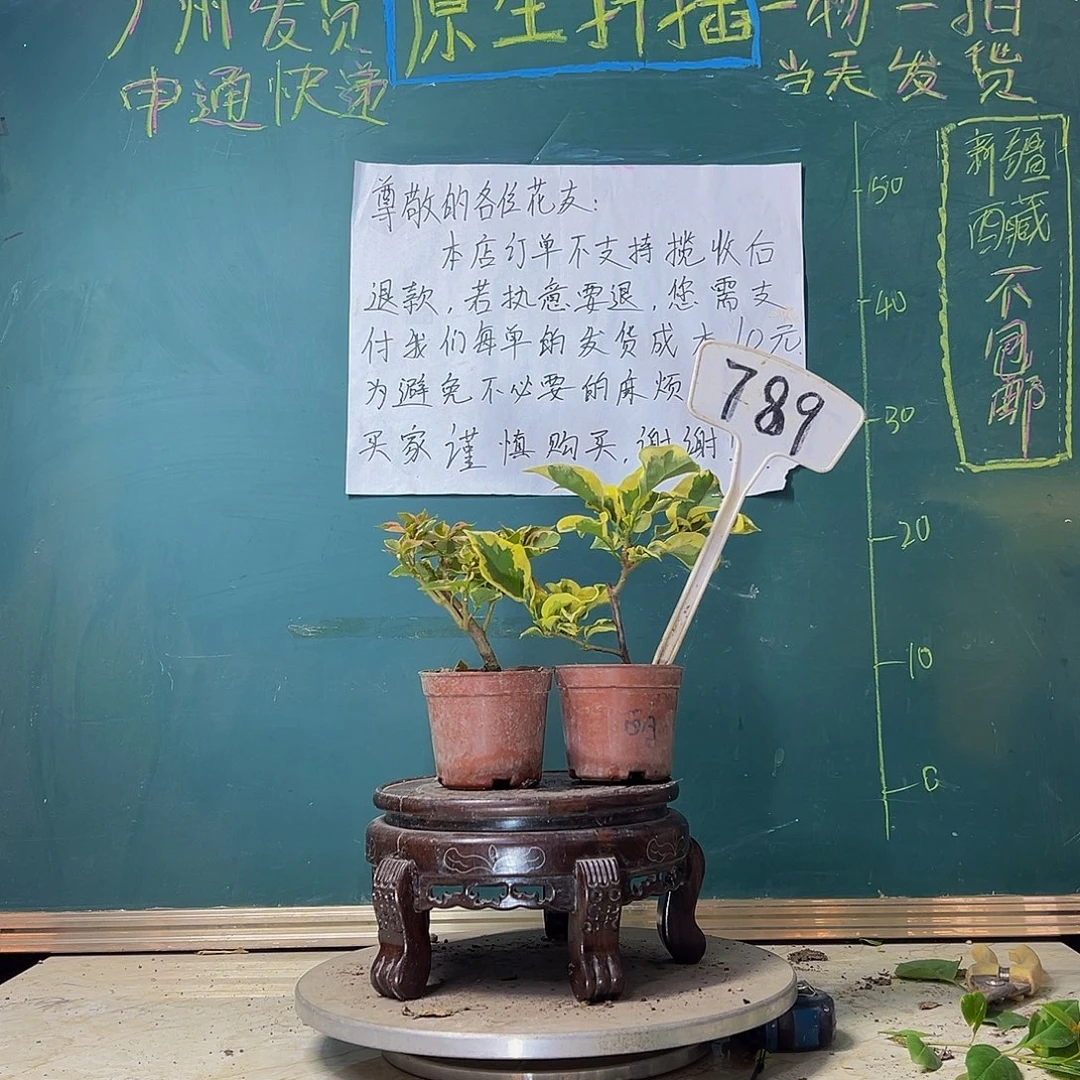 广州发货 原生扦插 一物一拍
申通快递
当天发货
新疆
西藏
不包邮
尊敬的各位花友：
本店订单不支持揽收后
退款，若执意要退，您需支
付我们每单的发货成本10元
为避免不必要的麻烦
买家谨慎购买，谢谢！
789
50
40
30
20
10
0